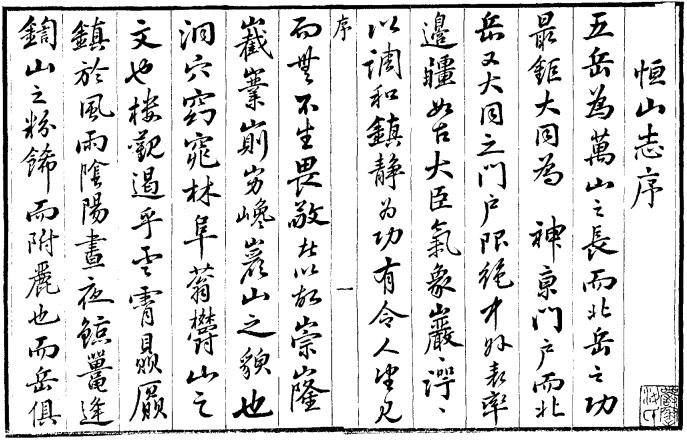 恒山志序
五岳為萬山之長而北岳之功
最鉅大同為 神京門户而北
岳又大同之門户限絶中外表率
邊疆如古大臣氣象巖〻諤〻
以調和鎮静為功有令人望見
序
一
而無不生畏敬者以故崇隆
嶻嶪崱屴巉巖山之貌也
洞穴窈窕林阜蓊欝山之
文也楼觀遏乎雲霄贔屭
鎮於風雨陰陽晝夜鯨鼉逢
山之粉餙而附麗也而岳俱